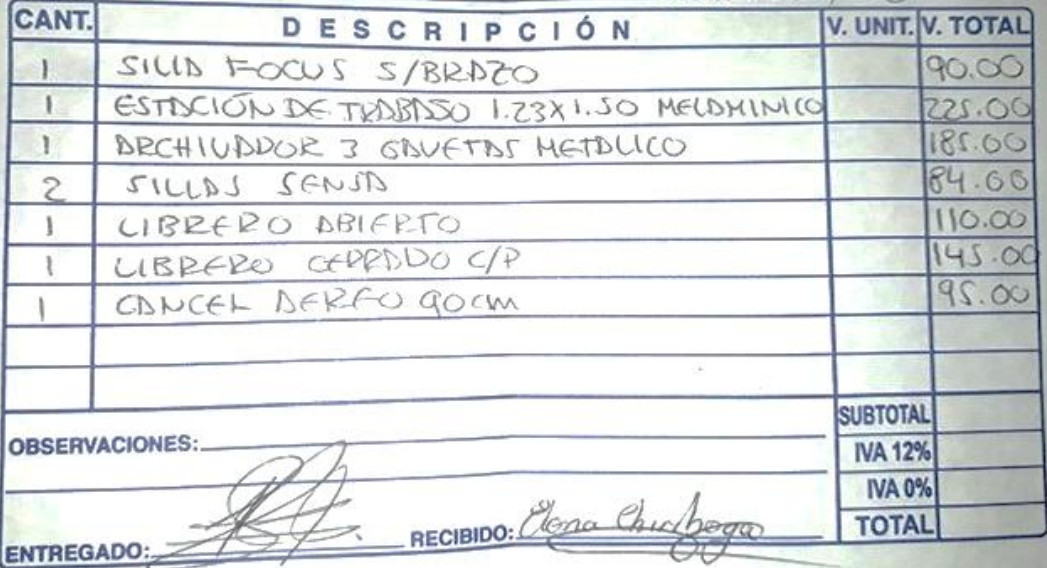 CANT. DESCRIPCIÓN V. UNIT. V. TOTAL
1 SILLA FOCUS S/BRAZO 90.00
1 ESTACIÓN DE TRABAJO 1.23X1.50 MELAMINICO 225.00
1 ARCHIVADOR 3 GAVETAS METALICO 185.00
2 SILLAS SENSA 84.00
1 LIBRERO ABIERTO 110.00
1 LIBRERO CERRADO C/P 145.00
1 CANCEL AEREO 90cm 95.00
SUBTOTAL
OBSERVACIONES:
IVA 12%
IVA 0%
TOTAL
ENTREGADO: RECIBIDO: Elena